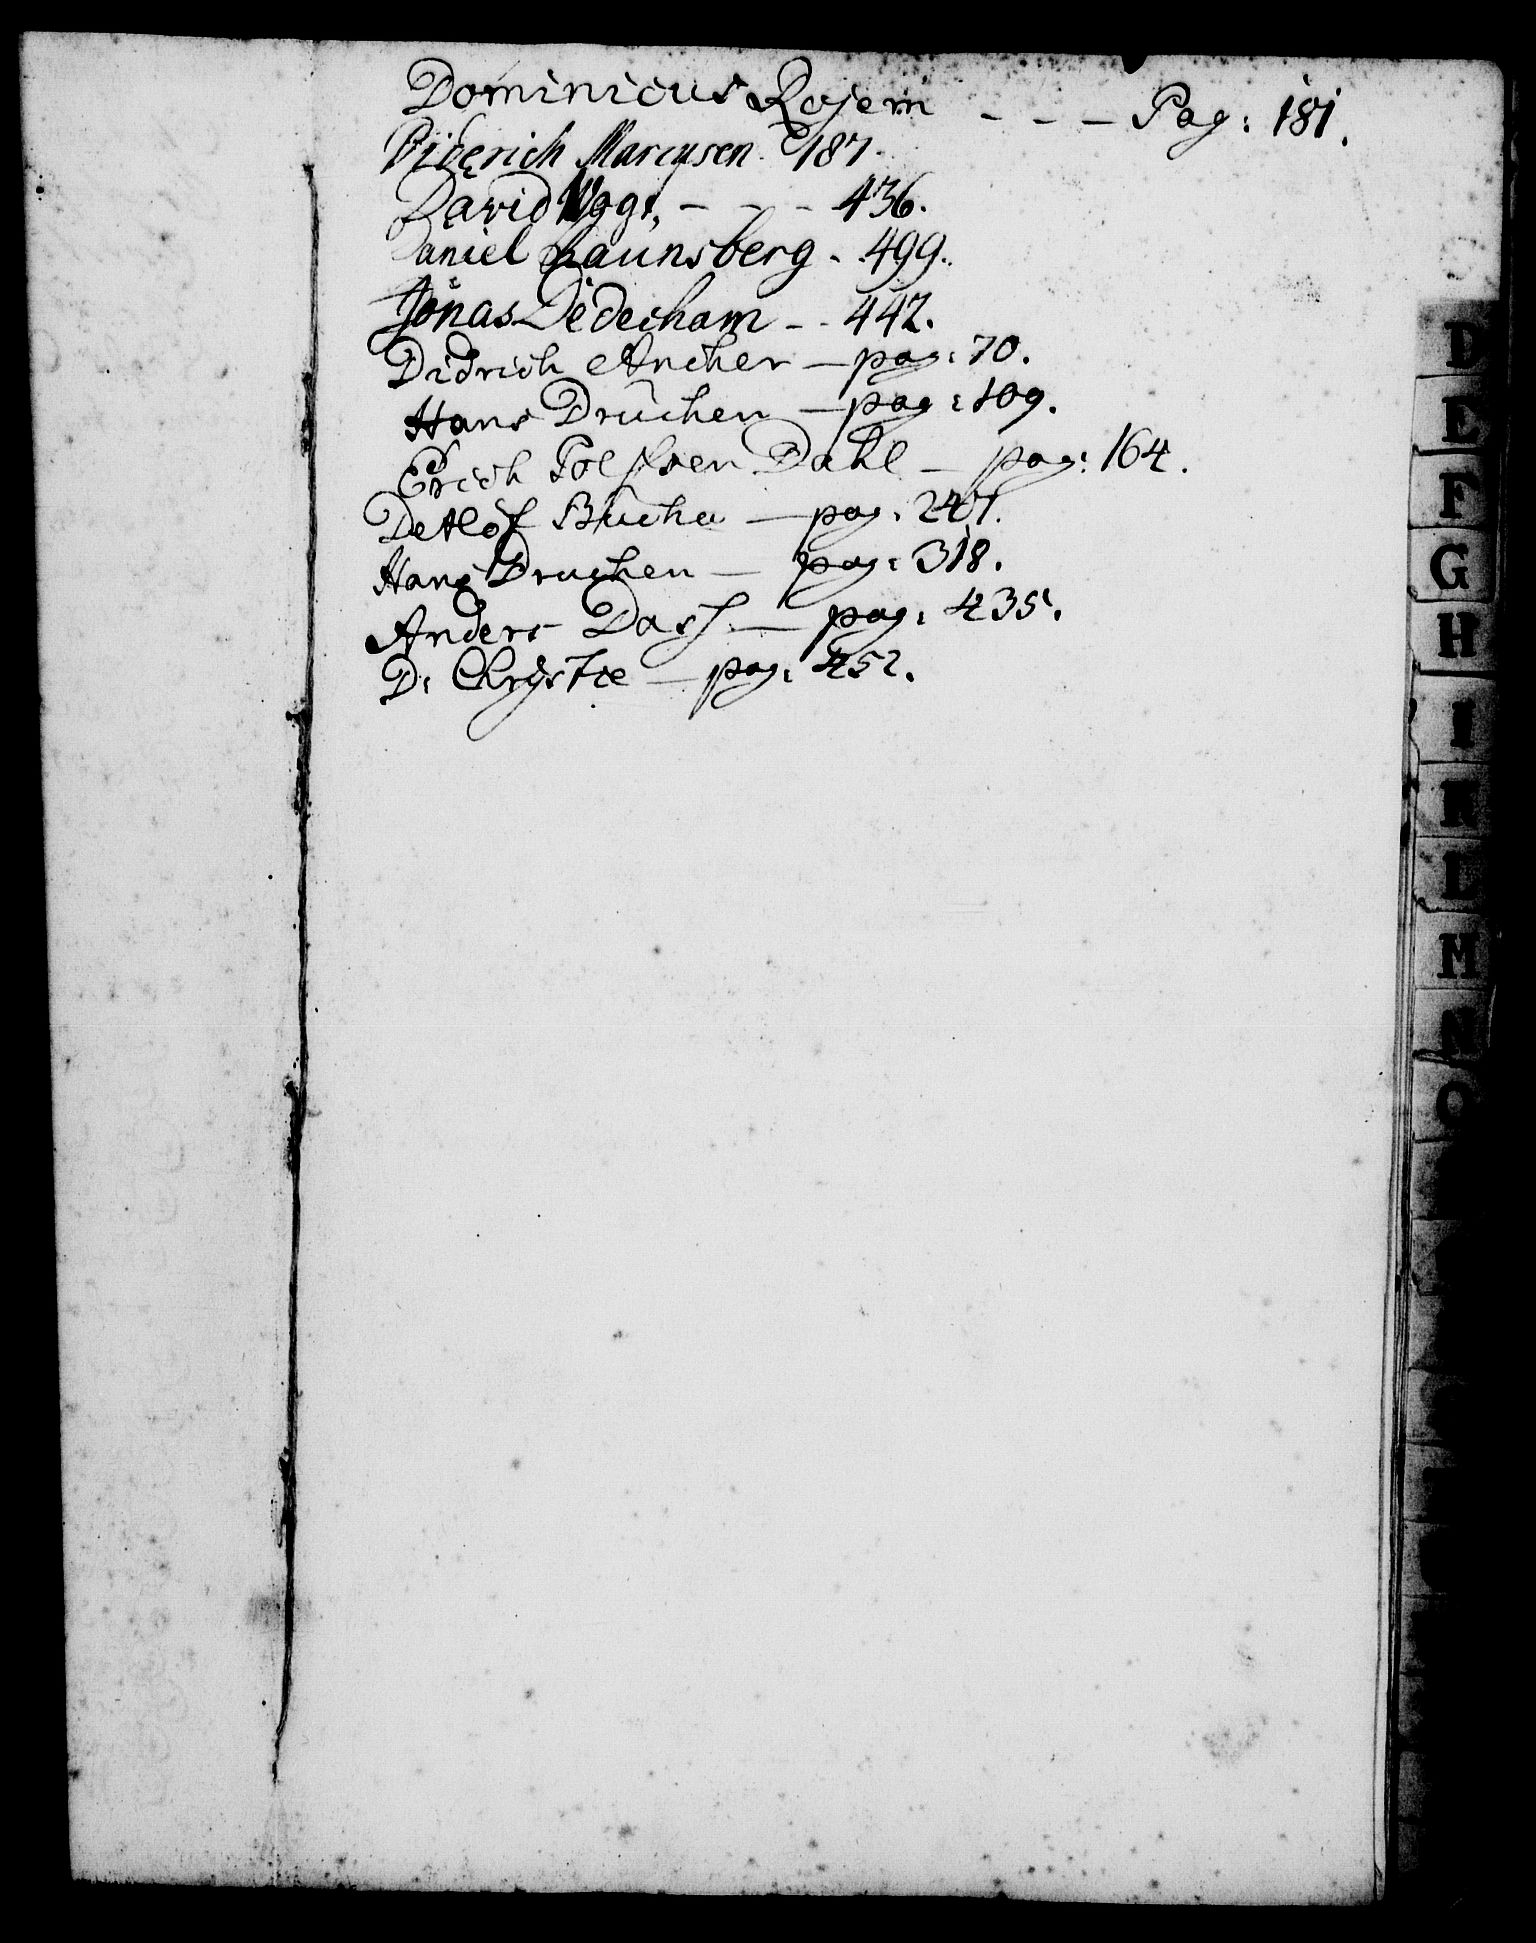 Dominicus Rojem - - - Pag: 181.
Diderich Marcusen. P 187.
David Vogt, - - - 436.
Daniel Raunsberg - 499.
Jonas Dedecham - - 442.
Didrich Ancher — pag: 70.
Hans Drûchen — pag: 109.
Erich Dahl — pag: 164.
Detlof Bûcha — pag: 247.
Hans Druchen — pag: 318.
Anders Dass — pag: 435.
D: Chrystie — pag: 452.
D
E
F
G
H
I
K
L
M
N
O